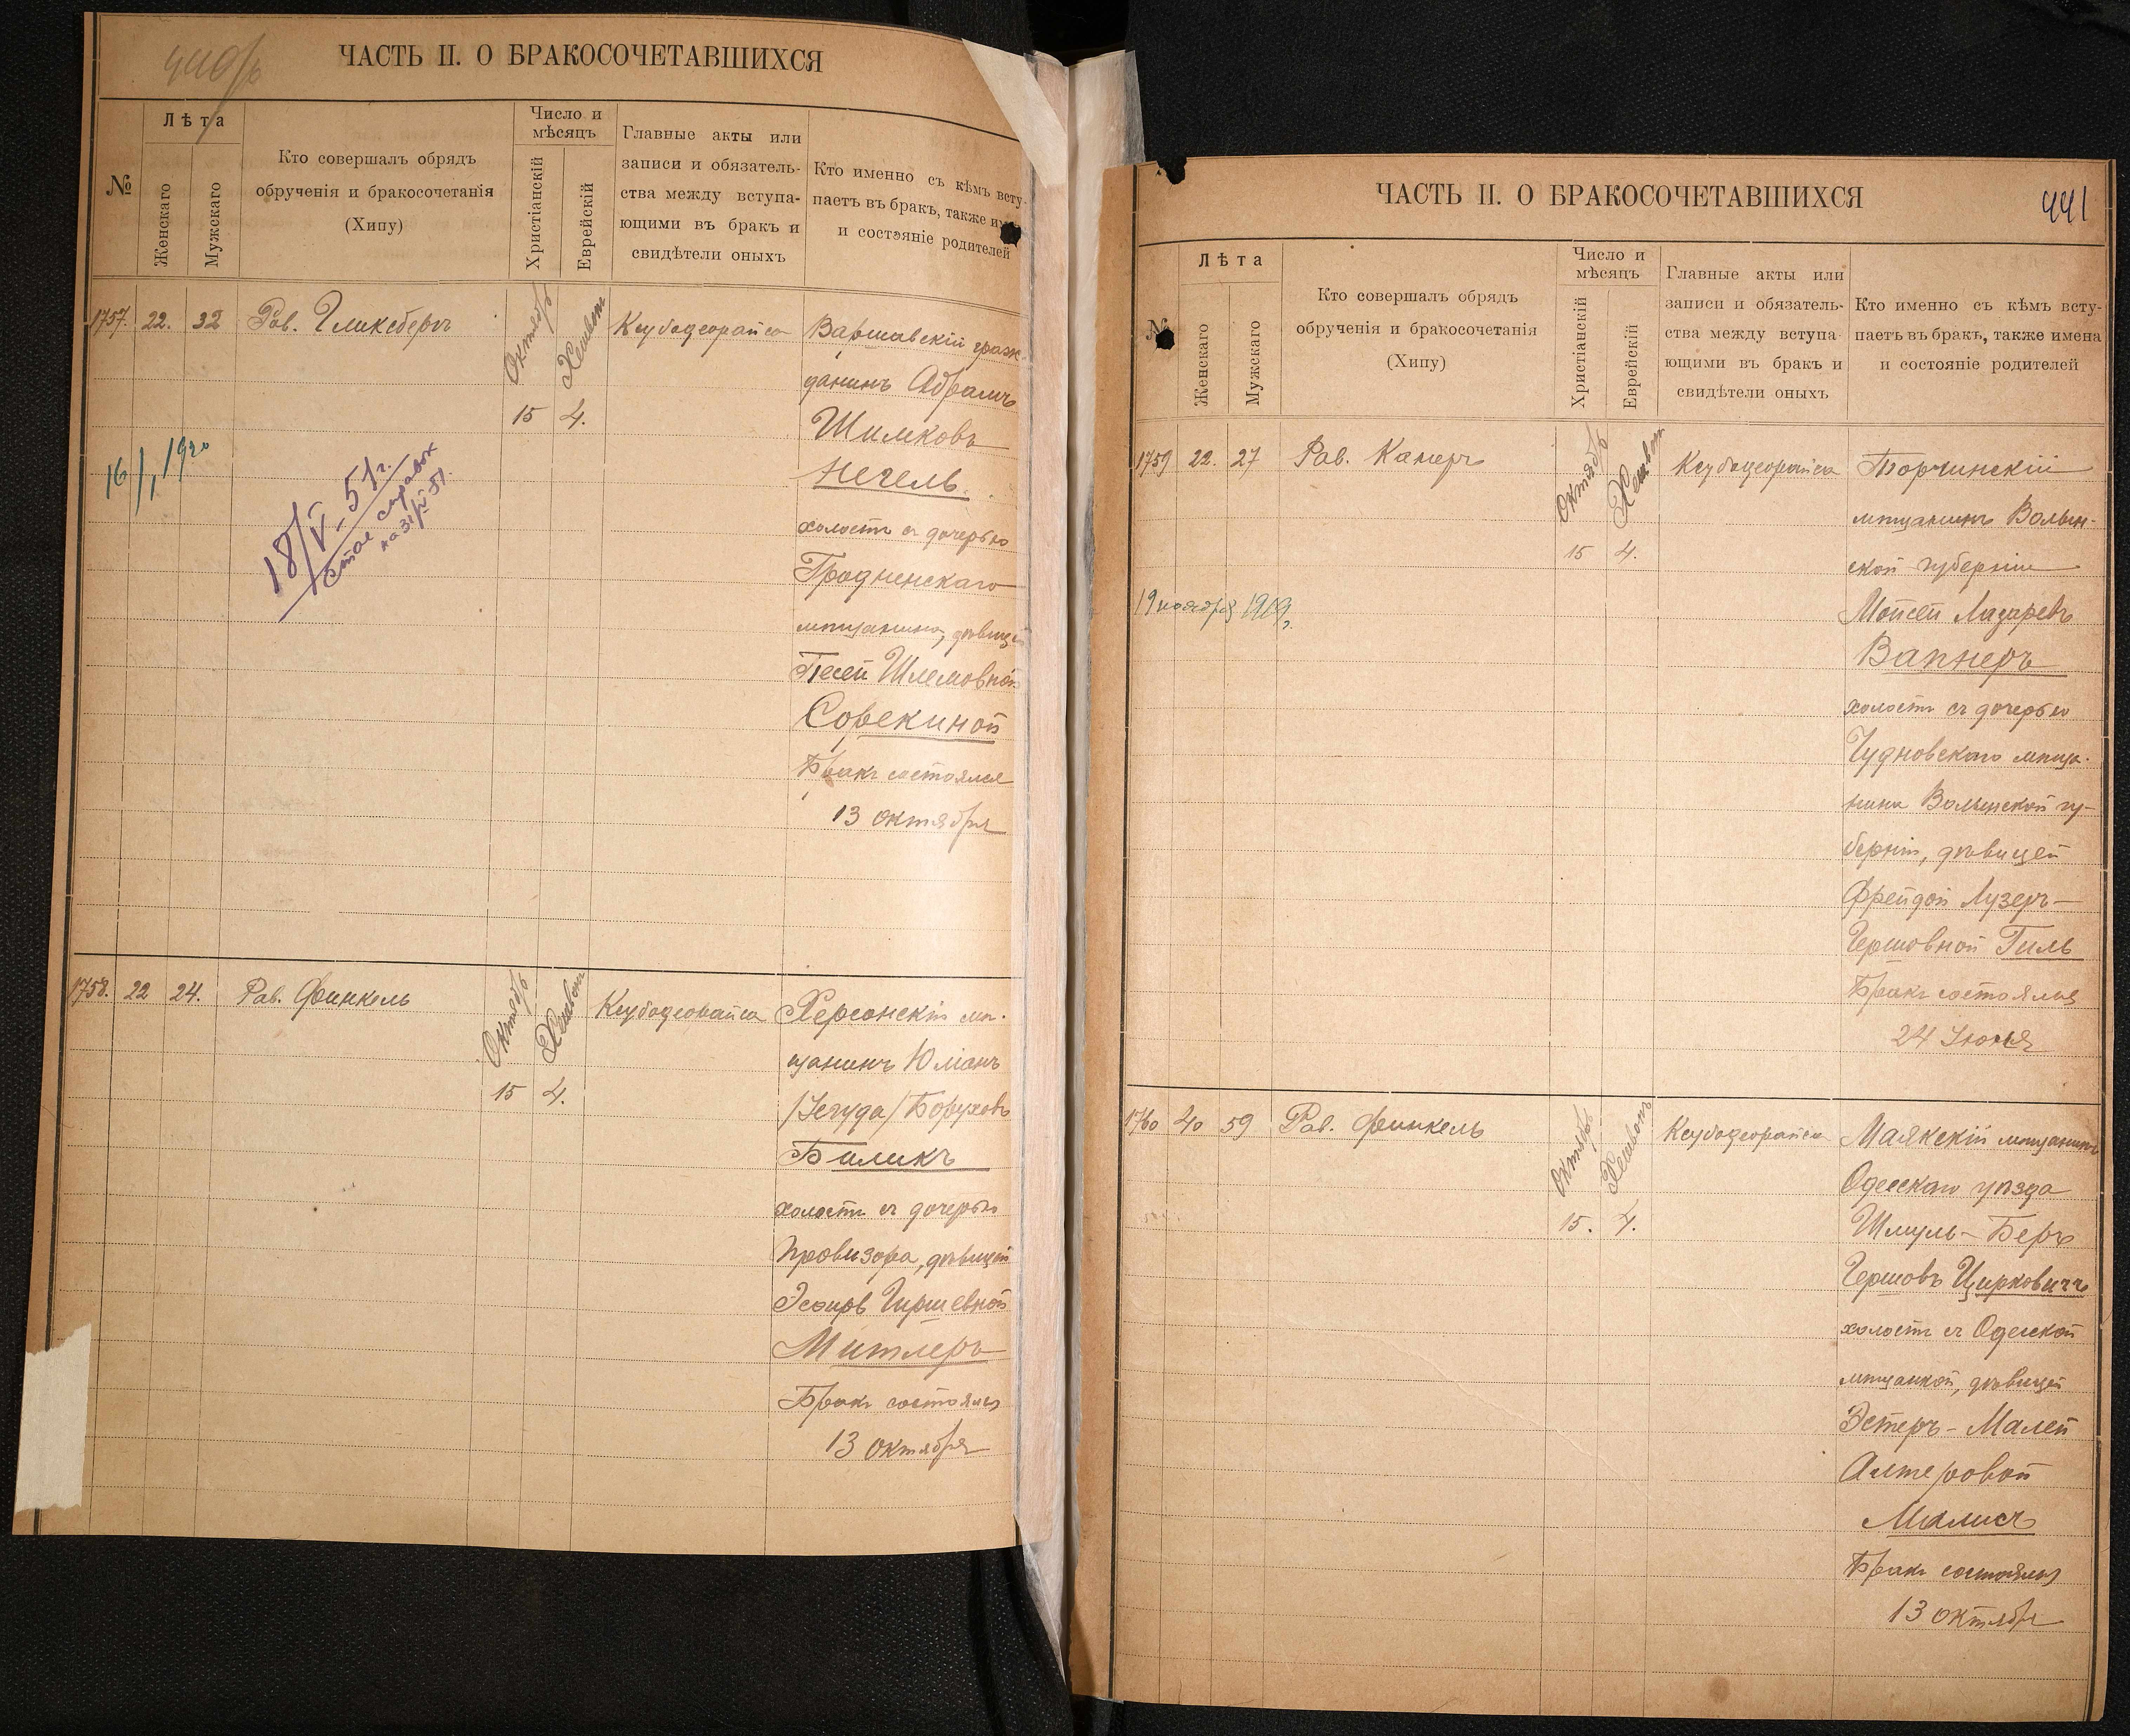 440/б
ЧАСТЬ II. О БРАКОСОЧЕТАВШИХСЯ
№
Лѣта
Женскаго
Мужскаго
Кто совершалъ обрядъ
обрученія и бракосочетанія
(Хипу)
Число и
мѣсяцъ
Христіанскій
Еврейскій
Главные акты или
записи и обязатель-
ства между вступа-
ющими въ бракъ и
свидѣтели оныхъ
Кто именно съ кѣмъ всту-
паетъ въ бракъ, также им
и состояніе родителей
1757. 22. 32 Рав. Гликсбергъ
Октябрь
Хешвон
15 4.
Ксубадеорайса
Варшавскій граж-
данинъ Абрамъ
Шимковъ
Нечель.
холостъ съ дочерью
Гродненскаго
мѣщанина, дѣвицей
Песей Шлемовной
Сорекиной
Бракъ состоялся
13 октября
16/1 1920
18/V-51г.
стол справок
1758. 22 24. Рав. Финкель
Октябрь
Хешвон
15 4.
Ксубадеорайса
Херсонскій мѣ-
щанинъ Юманъ
/Іегуда/ Боруховъ
Биликъ
холостъ съ дочерью
Провизора, дѣвицей
Эсѳирь Гиршевной
Митлеръ
Бракъ состоялся
13 октября
ЧАСТЬ II. О БРАКОСОЧЕТАВШИХСЯ
441
№
Лѣта
Женскаго
Мужскаго
Кто совершалъ обрядъ
обрученія и бракосочетанія
(Хипу)
Число и
мѣсяцъ
Христіанскій
Еврейскій
Главные акты или
записи и обязатель-
ства между вступа-
ющими въ бракъ и
свидѣтели оныхъ
Кто именно съ кѣмъ всту-
паетъ въ бракъ, также имена
и состояніе родителей
1759 22. 27 Рав. Камеръ
Октябрь
Хешвон
15 4.
Ксубадеорайса
Торчинскій
мѣщанинъ Волын-
ской губерніи
Мойсей Лазаревъ
Вапнеръ
холостъ съ дочерью
Чудновскаго мѣща-
нина Волынской гу-
берніи, дѣвицей
Фрейдой Лузеръ-
Гершовной Гиль
Бракъ состоялся
24 Іюня
19 ноября 1919.
1760 40 59 Рав. Финкель
Октябрь
Хешвон
15. 4.
Ксубадеорайса
Маякскій мѣщанинъ
Одесскаго уѣзда
Шмуль-Беръ
Гершовъ Цирковичъ
холостъ съ Одесской
мѣщанкой, дѣвицей
Эстеръ-Малей
Алтеровой
Малисъ
Бракъ состоялся
13 октября